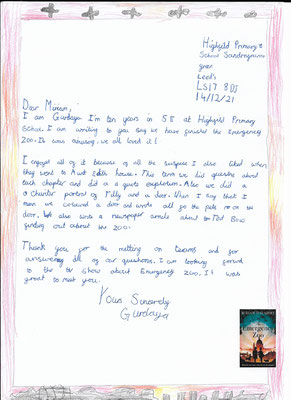 Highfield Primary
School Sandringham
green
Leeds
LS17 8DJ
14/12/21
Dear Miriam,
I am Gurdaya I'm ten years in 5E at Highfield Primary
School. I am writing to you say we have finished the Emergency
Zoo. It was amazing. we all loved it!
I enjoyed all of it because of all the suspense I also liked when
they went to Aunt Edith house. This term we did questions about
each chapter and did a quote explosion. Also we did
a Charter portrait of Tilly and a door. When I say that I
mean we coloured a door and wrote all of the pets on the
door. We also wrote a newspaper article about Red Bow
finding out about the zoo.
Thank you for the meeting on teams and for
answering all of our questions. I am looking forward
to the tv show about Emergency zoo. It was
great to meet you.
Yours Sincerely
Gurdaya
Emergency
Zoo